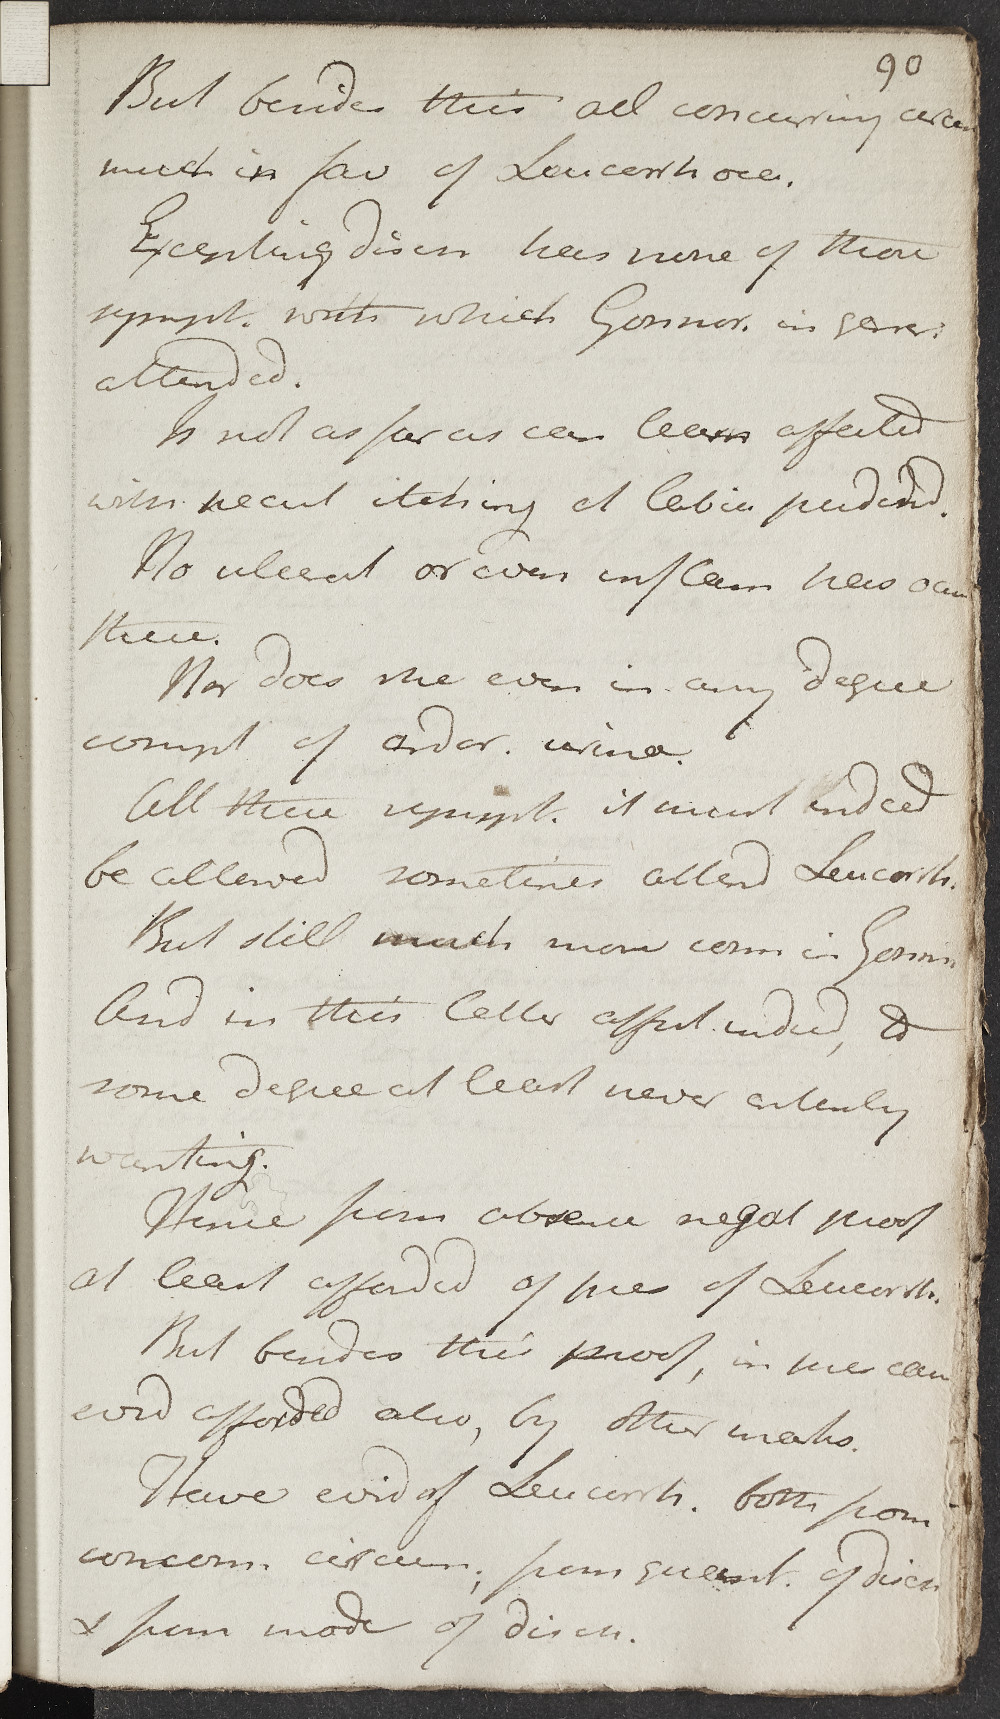 90
But besides this all concurring circum
much in fav of Leucorrhoea.
Excepting disch has none of those
sympt. with which Gonnor. in gener:
attended.
Is not as far as can learn affected
with itching at labia pudend.
No ulcerat or even inflam has occur
there.
Nor does she even in any degree
compl of ardor. urinae.
All these sympt. it must indeed
be allowed sometimes attend Leucorrh.
But still much more comm in Gonorr
And in this latter affect indeed, to
some degree at least never entirely
wanting.
Hence from absence negat proof
at least afforded of pres of Leucorrh.
But besides this proof, in pres case
evid afforded also, by other marks.
Have evid of Leucorrh. both from
concom. circum, from quant. of disch
& from mode of disch.